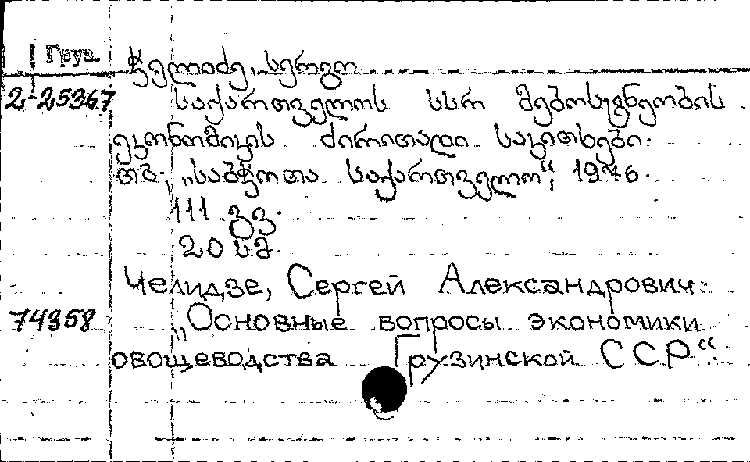 Груз.
ჭელიძე, სერგო
2-25367 საქართველოს სსრ მებოსტნეობის
ეკონომიკის ძირითადი საკითხები.
თბ., „საბჭოთა საქართველო“, 1976.
111 გვ.
20 სმ.
Челидзе, Сергей Александрович.
74958 „Основные вопросы экономики
овощеводства Грузинской ССР“.